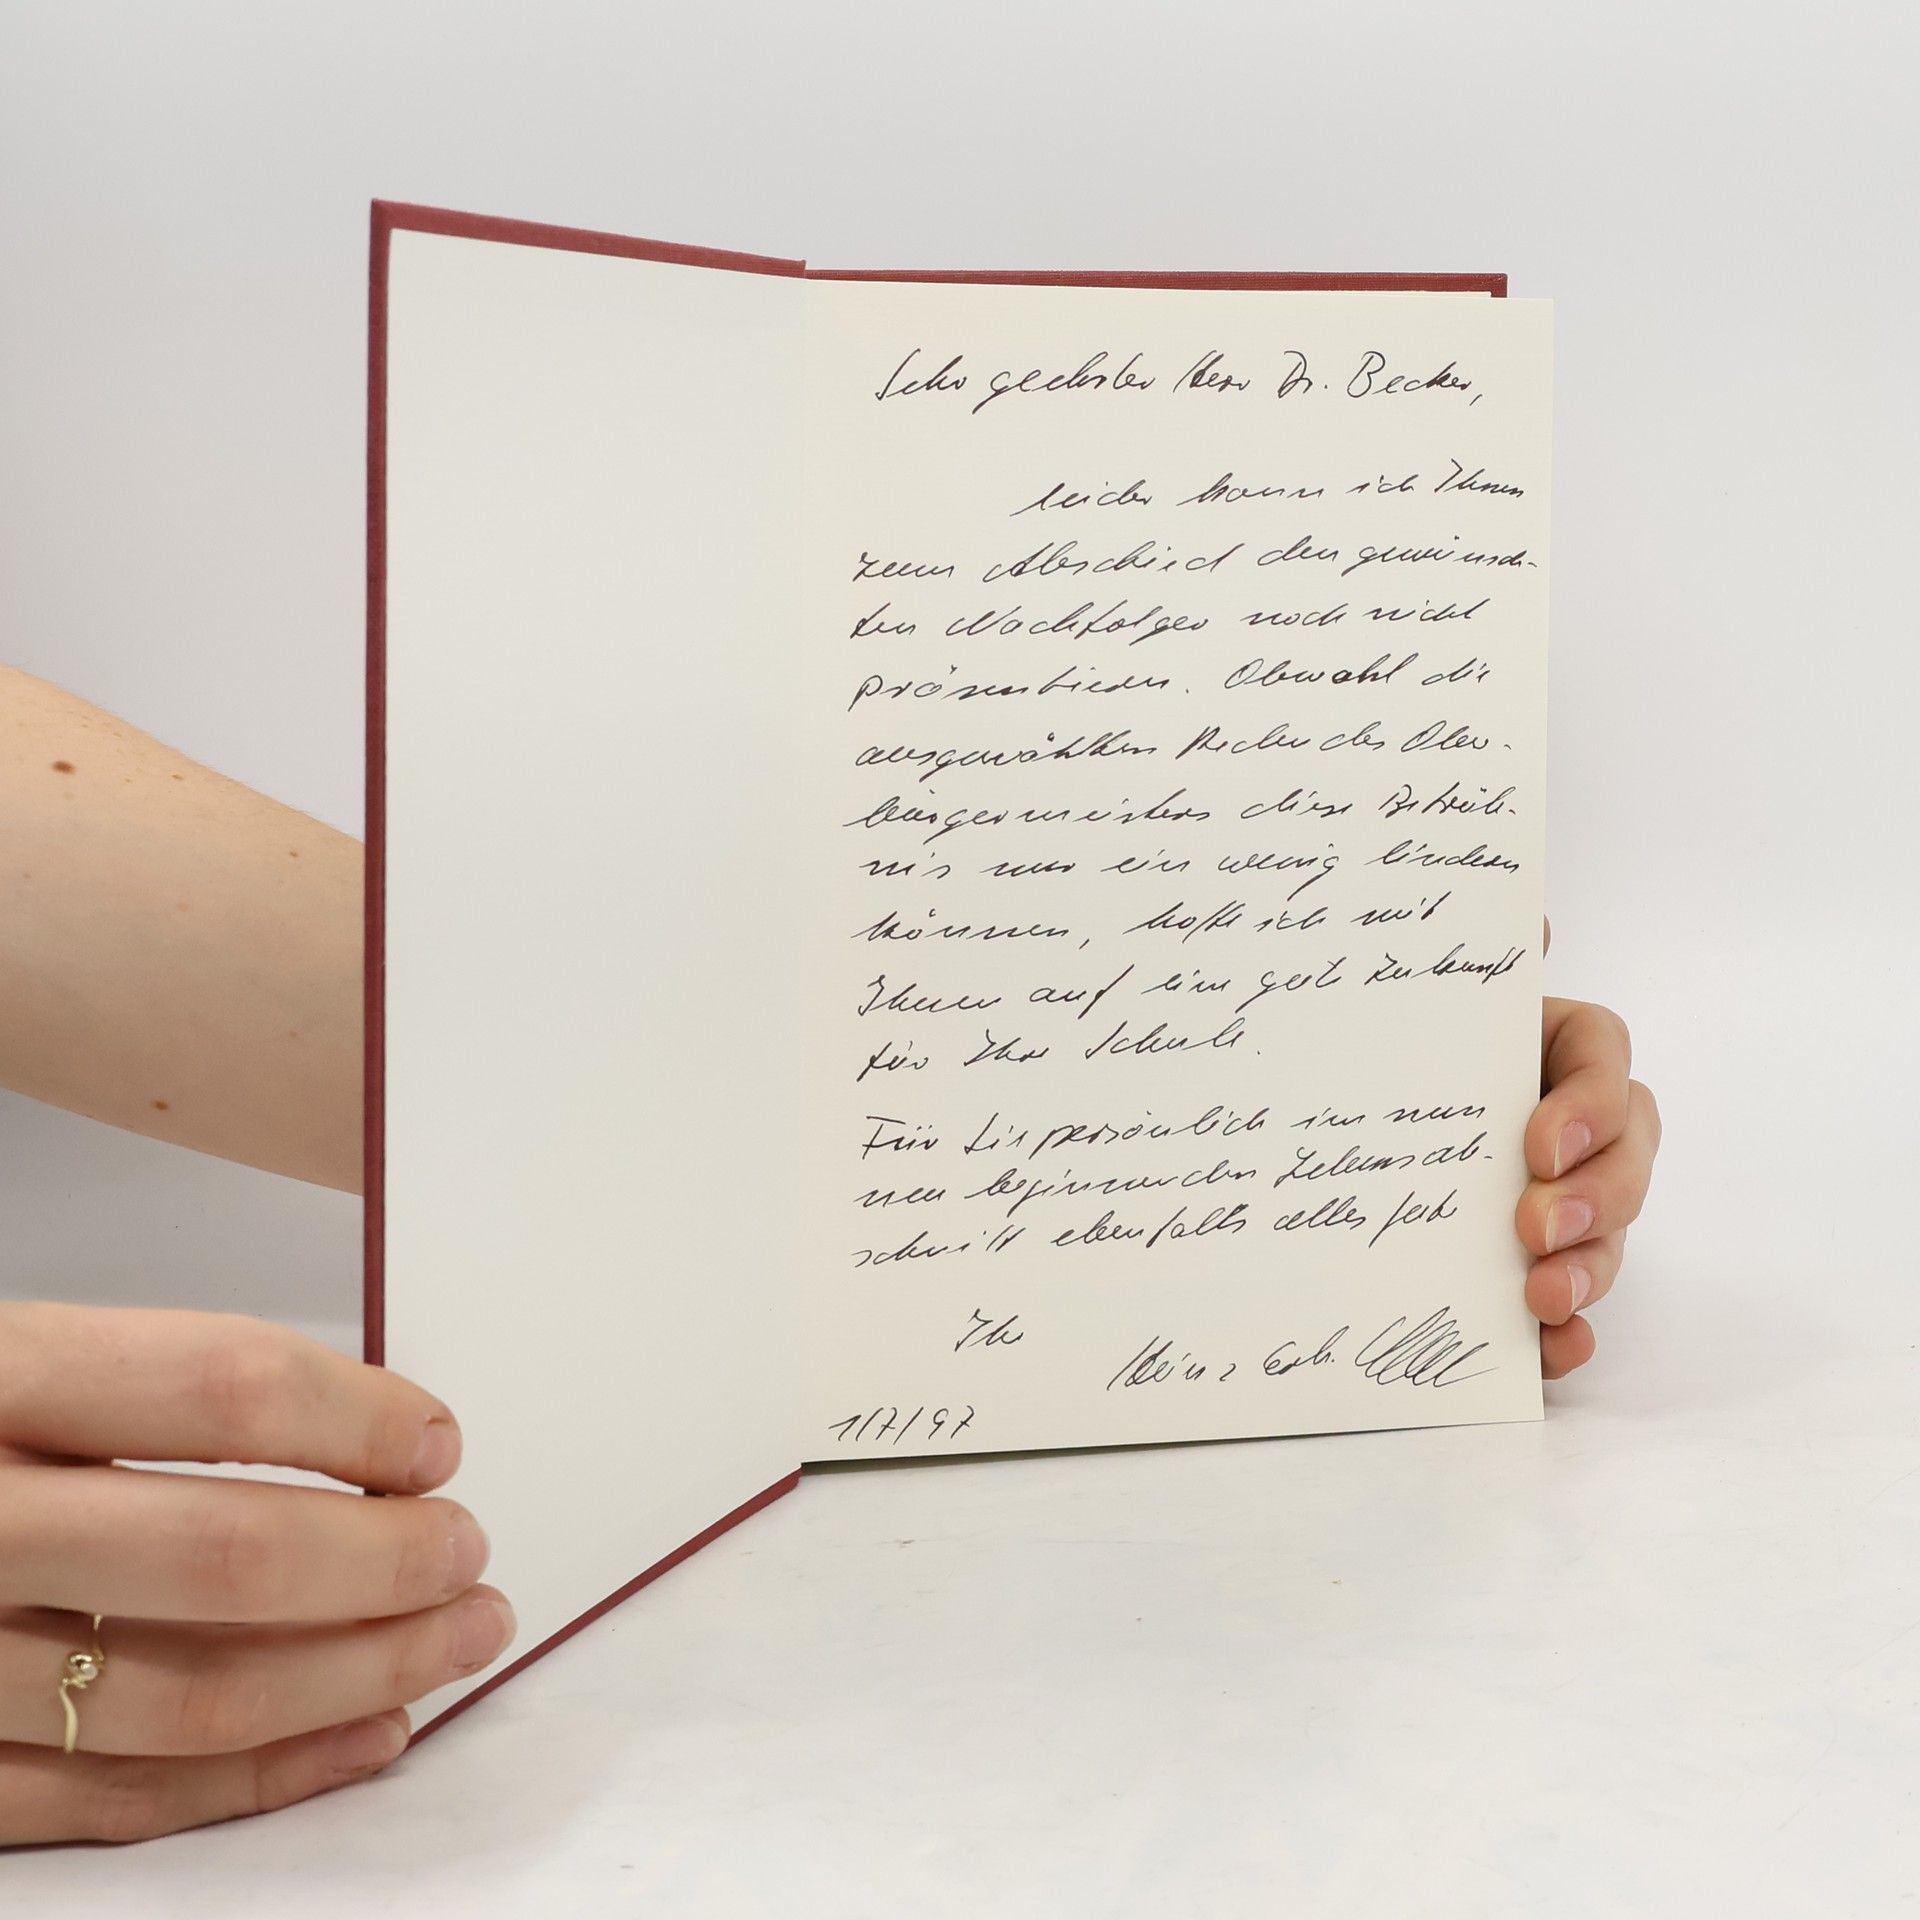 Sehr geehrter Herr Dr. Becker,
leider kann ich Ihnen
zum Abschied den gewünsch-
ten Nachfolger noch nicht
präsentieren. Obwohl die
ausgewählten Reden des Ober-
bürgermeisters diese Betrüb-
nis nur ein wenig lindern
können, hoffe ich mit
Ihnen auf eine gute Zukunft
für Ihre Schule.
Für Sie persönlich im nun
neu beginnenden Lebensab-
schnitt ebenfalls alles Gute
Ihr
Heinz
1/7/97